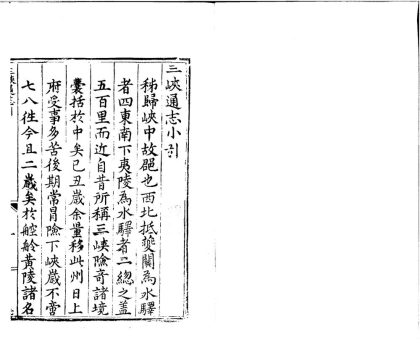 三峽通志小引
秭歸峽中故郡也西北抵夔關為水驛
者四東南下夷陵為水驛者二總之蓋
五百里而近自昔所稱三峽險奇諸境
囊括於中矣己丑歲余量移此州日上
府受事多苦後期常冒險下峽歲不啻
七八往今且二歲矣於舲黃陵諸名